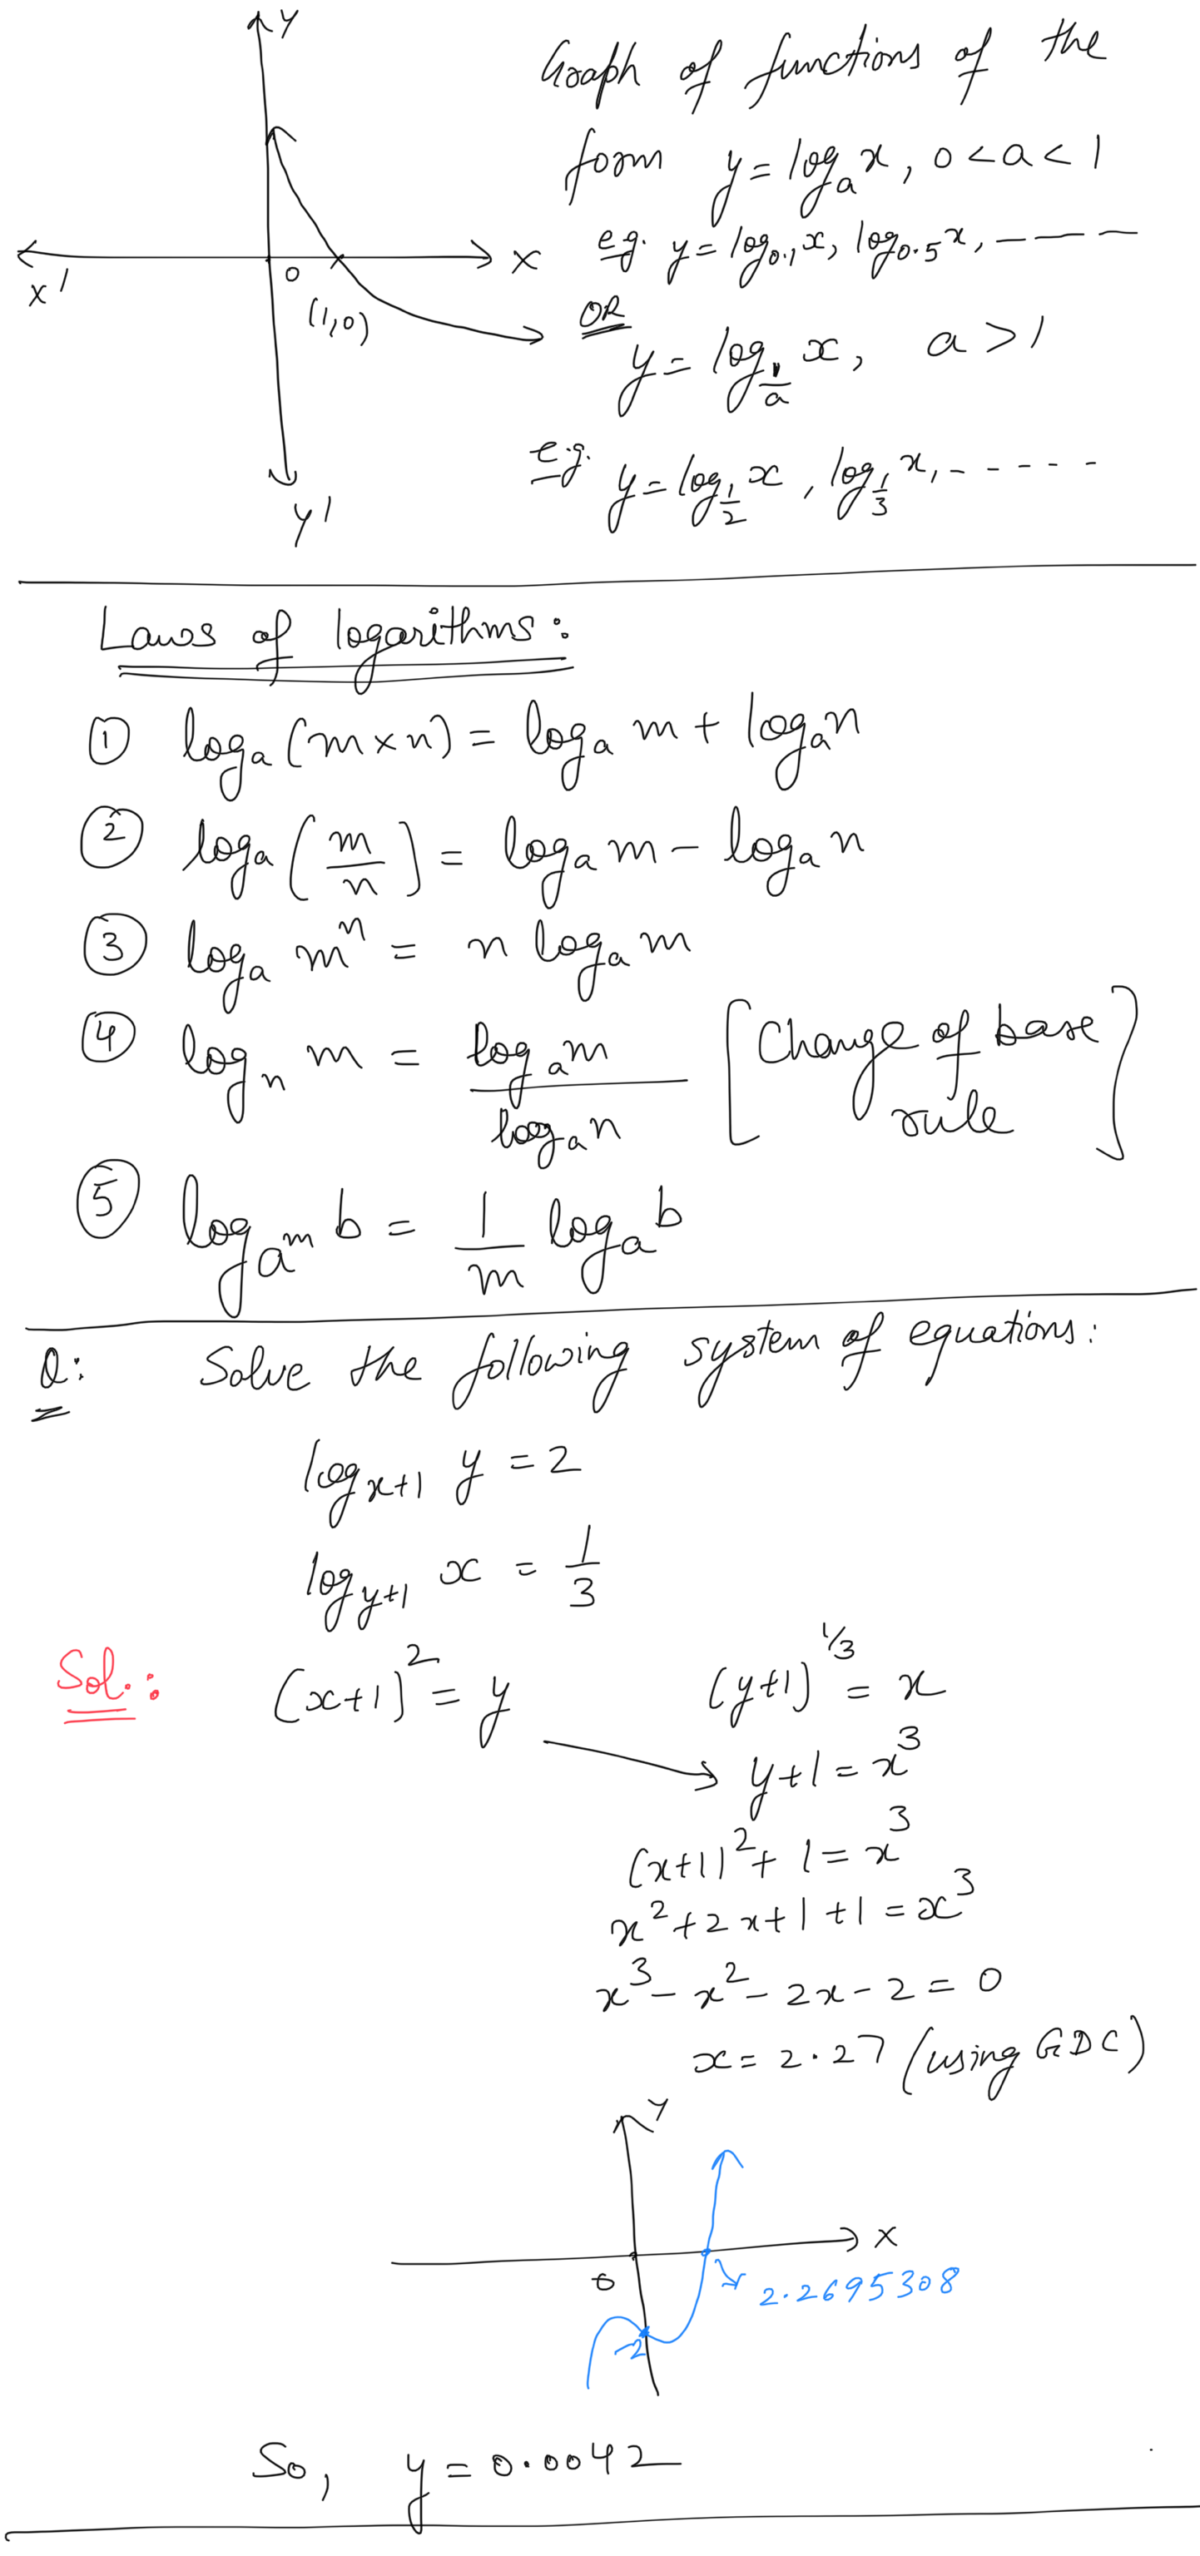 Y
Graph of functions of the
form y = logₐ x, 0 < a < 1
X' O X
(1,0)
e.g. y = log₀.₁ x, log₀.₅ x, ————
OR
y = log_(1/a) x, a > 1
e.g. y = log_(1/2) x, log_(1/3) x, - - - - -
Y'
Laws of logarithms:
① logₐ (m × n) = logₐ m + logₐ n
② logₐ (m/n) = logₐ m − logₐ n
③ logₐ mⁿ = n logₐ m
④ logₙ m = logₐ m / logₐ n [Change of base
rule]
⑤ log_(a^m) b = 1/m logₐ b
Q: Solve the following system of equations:
log_(x+1) y = 2
log_(y+1) x = 1/3
Sol.: (x+1)² = y (y+1)^(1/3) = x
→ y+1 = x³
(x+1)² + 1 = x³
x² + 2x + 1 + 1 = x³
x³ − x² − 2x − 2 = 0
x = 2.27 (using GDC)
Y
X
0
2.2695308
-2
So, y = 0.0042